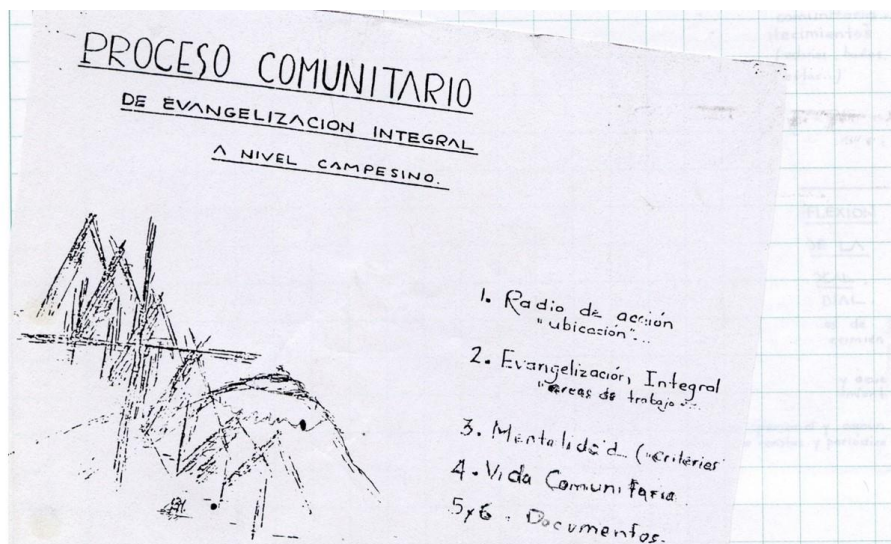 PROCESO COMUNITARIO
DE EVANGELIZACION INTEGRAL
A NIVEL CAMPESINO.
1. Radio de acción
"ubicación"...
2. Evangelización, Integral
"areas de trabajo"...
3. Mentalidad ("criterios
4. Vida Comunitaria
5 y 6 - Documentos.
FLEXION
DE LA